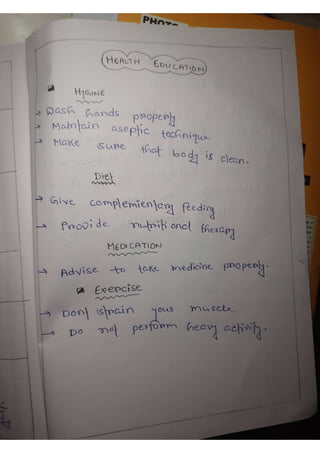 PHOTO
HEALTH EDUCATION
HYGINE
→ Wash hands properly
→ Maintain aseptic technique
→ Make sure that body is clean.
Diet
→ Give complementary feeding
→ Provide nutritional therapy
MEDICATION
→ Advise to take medicine properly.
Exercise
→ Dont strain your muscle
→ Do not perform heavy activity.